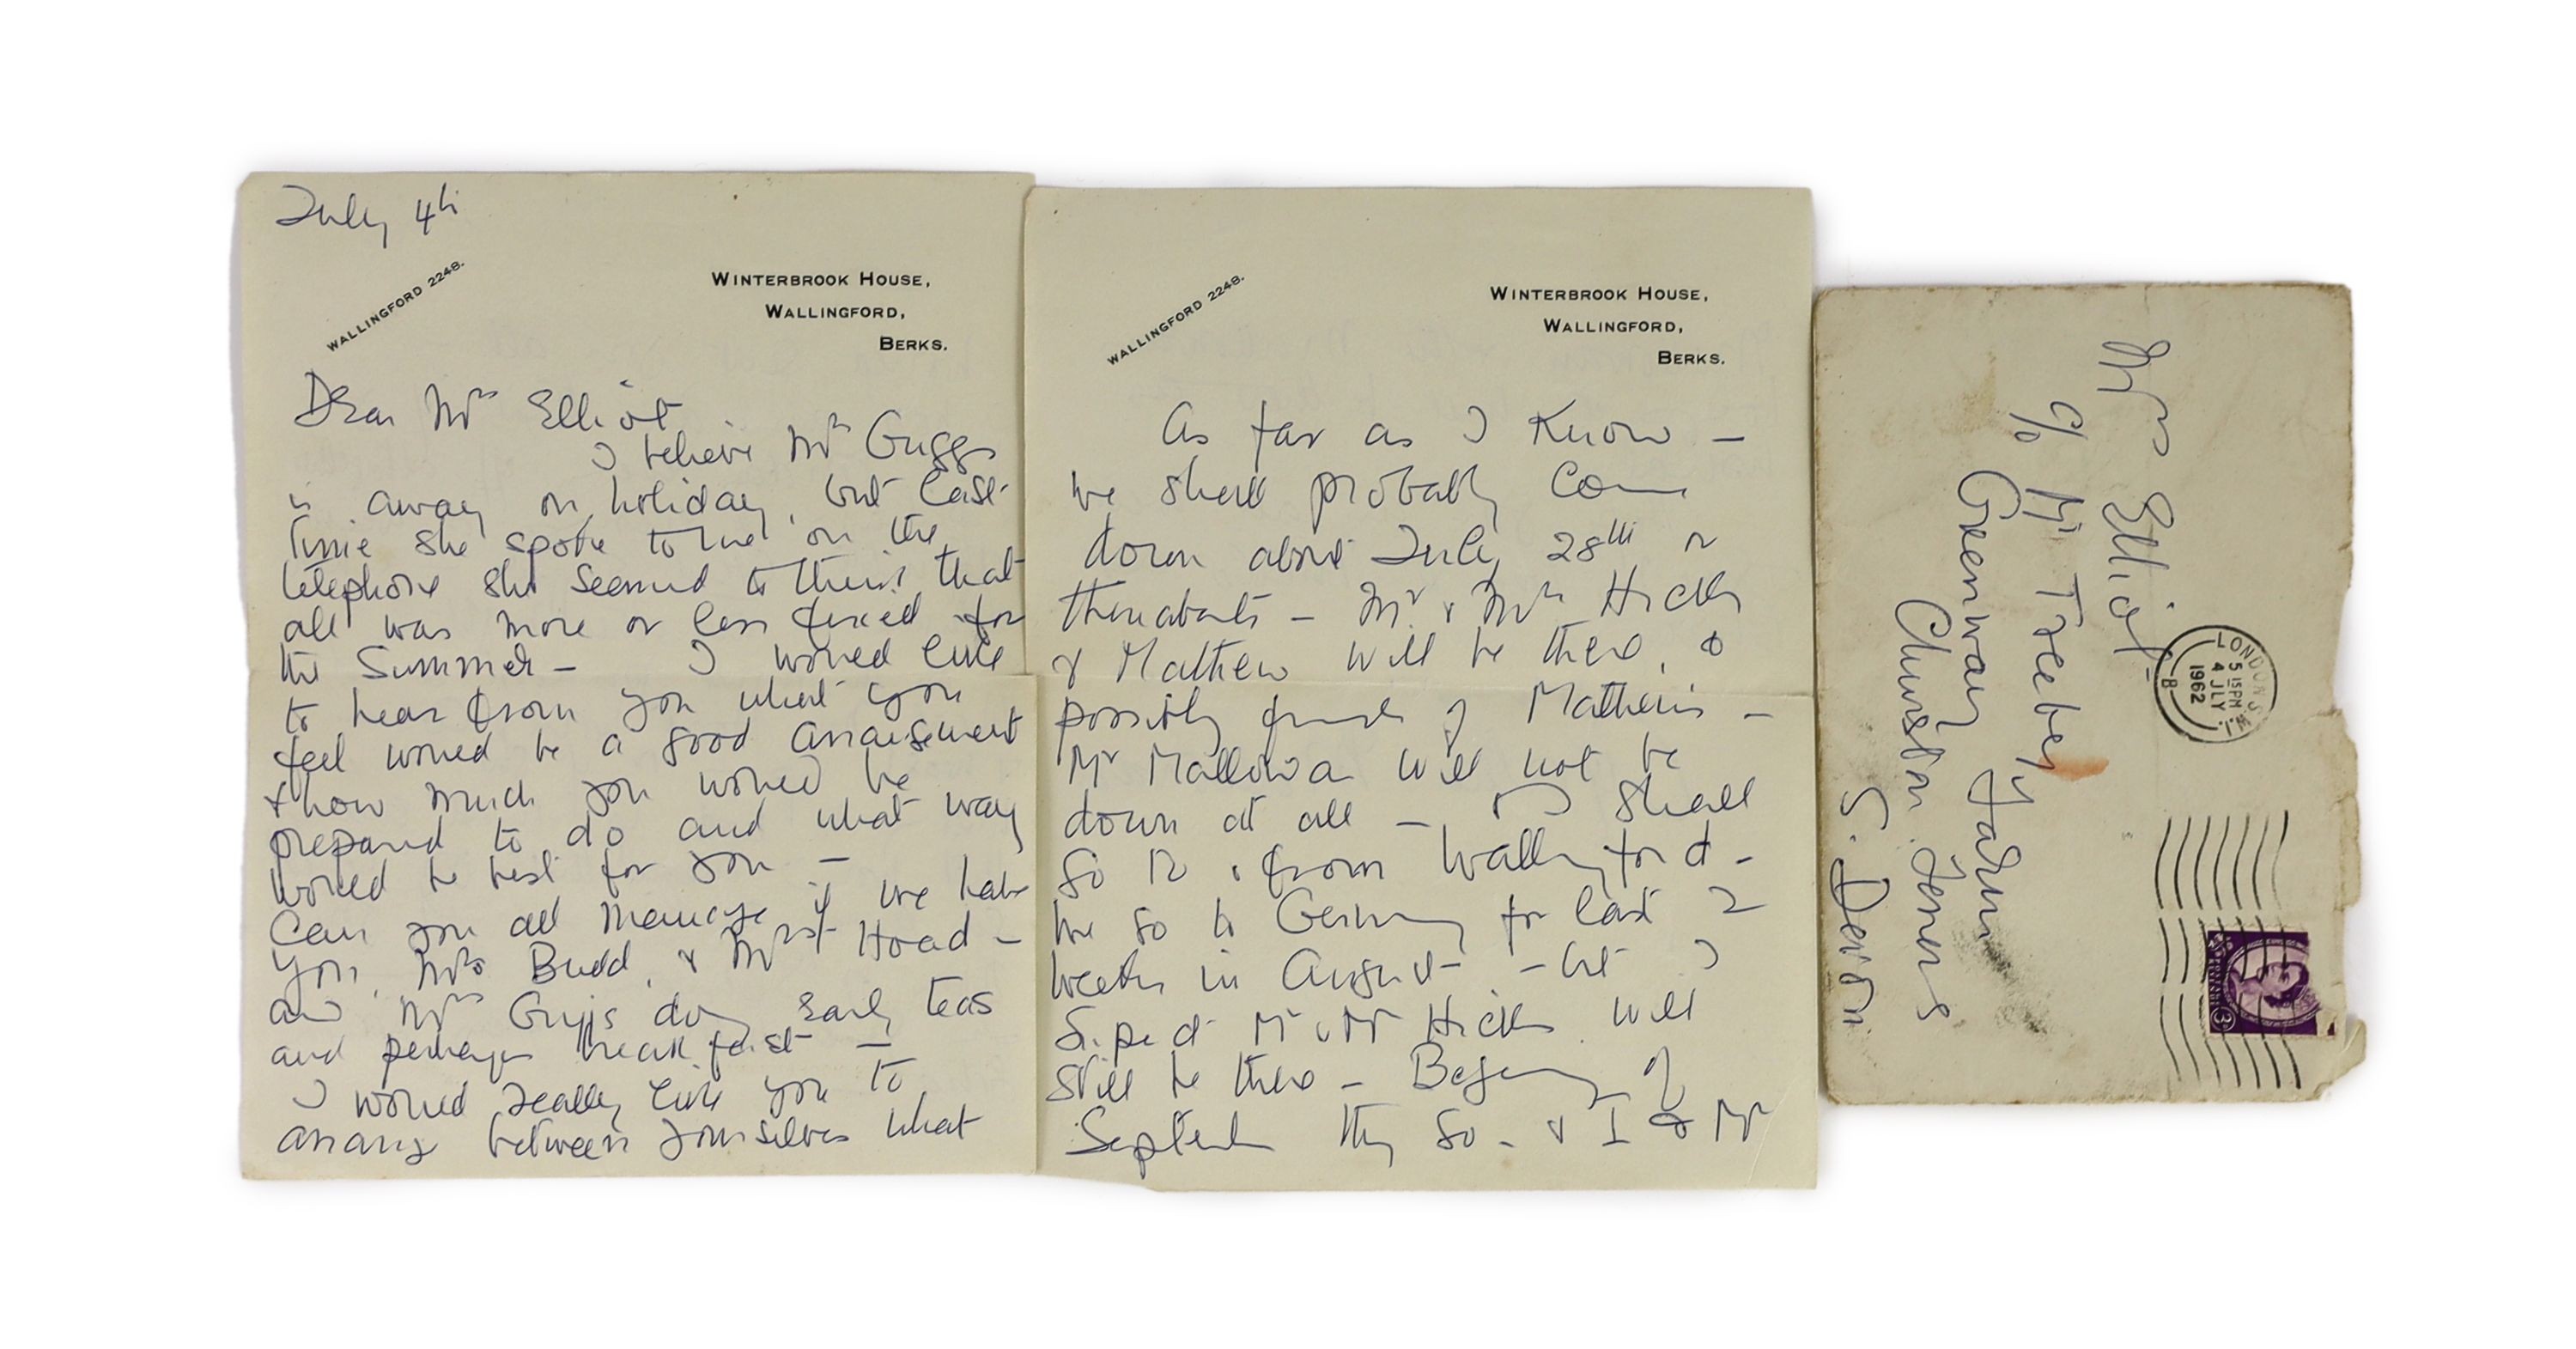 July 4th
WALLINGFORD 2248.
WINTERBROOK HOUSE,
WALLINGFORD,
BERKS.
Dear Mrs Elliot
I believe Mrs Griggs
is away on holiday, but last
time she spoke to me on the
telephone she seemed to think that
all was more or less fixed for
the Summer – I would like
to hear from you what you
feel would be a good arrangement
& how much you would be
prepared to do and what way
would be best for you –
Can you all manage if we have
you, Mrs Budd, & Mrs Hoad –
and Mrs Griggs doing early teas
and perhaps breakfast –
I would really like you to
arrange between yourselves what
WALLINGFORD 2248.
WINTERBROOK HOUSE,
WALLINGFORD,
BERKS.
As far as I know –
we shall probably come
down about July 28th or
thereabouts – Mr & Mrs Hicks
& Mathew will be there, &
possibly friends of Mathew's –
Mr Mallowan will not be
down at all – I shall
go to & from Wallingford –
We go to Germany for last 2
weeks in August – but I
expect Mr & Mrs Hicks will
still be there – Beginning of
September they go – & I & Mr
Mrs Elliot
c/o Mr Treeby
Greenway Farm
Churston Ferrers
S. Devon
LONDON S.W.1.
5 15PM
4 JLY
1962
B
3